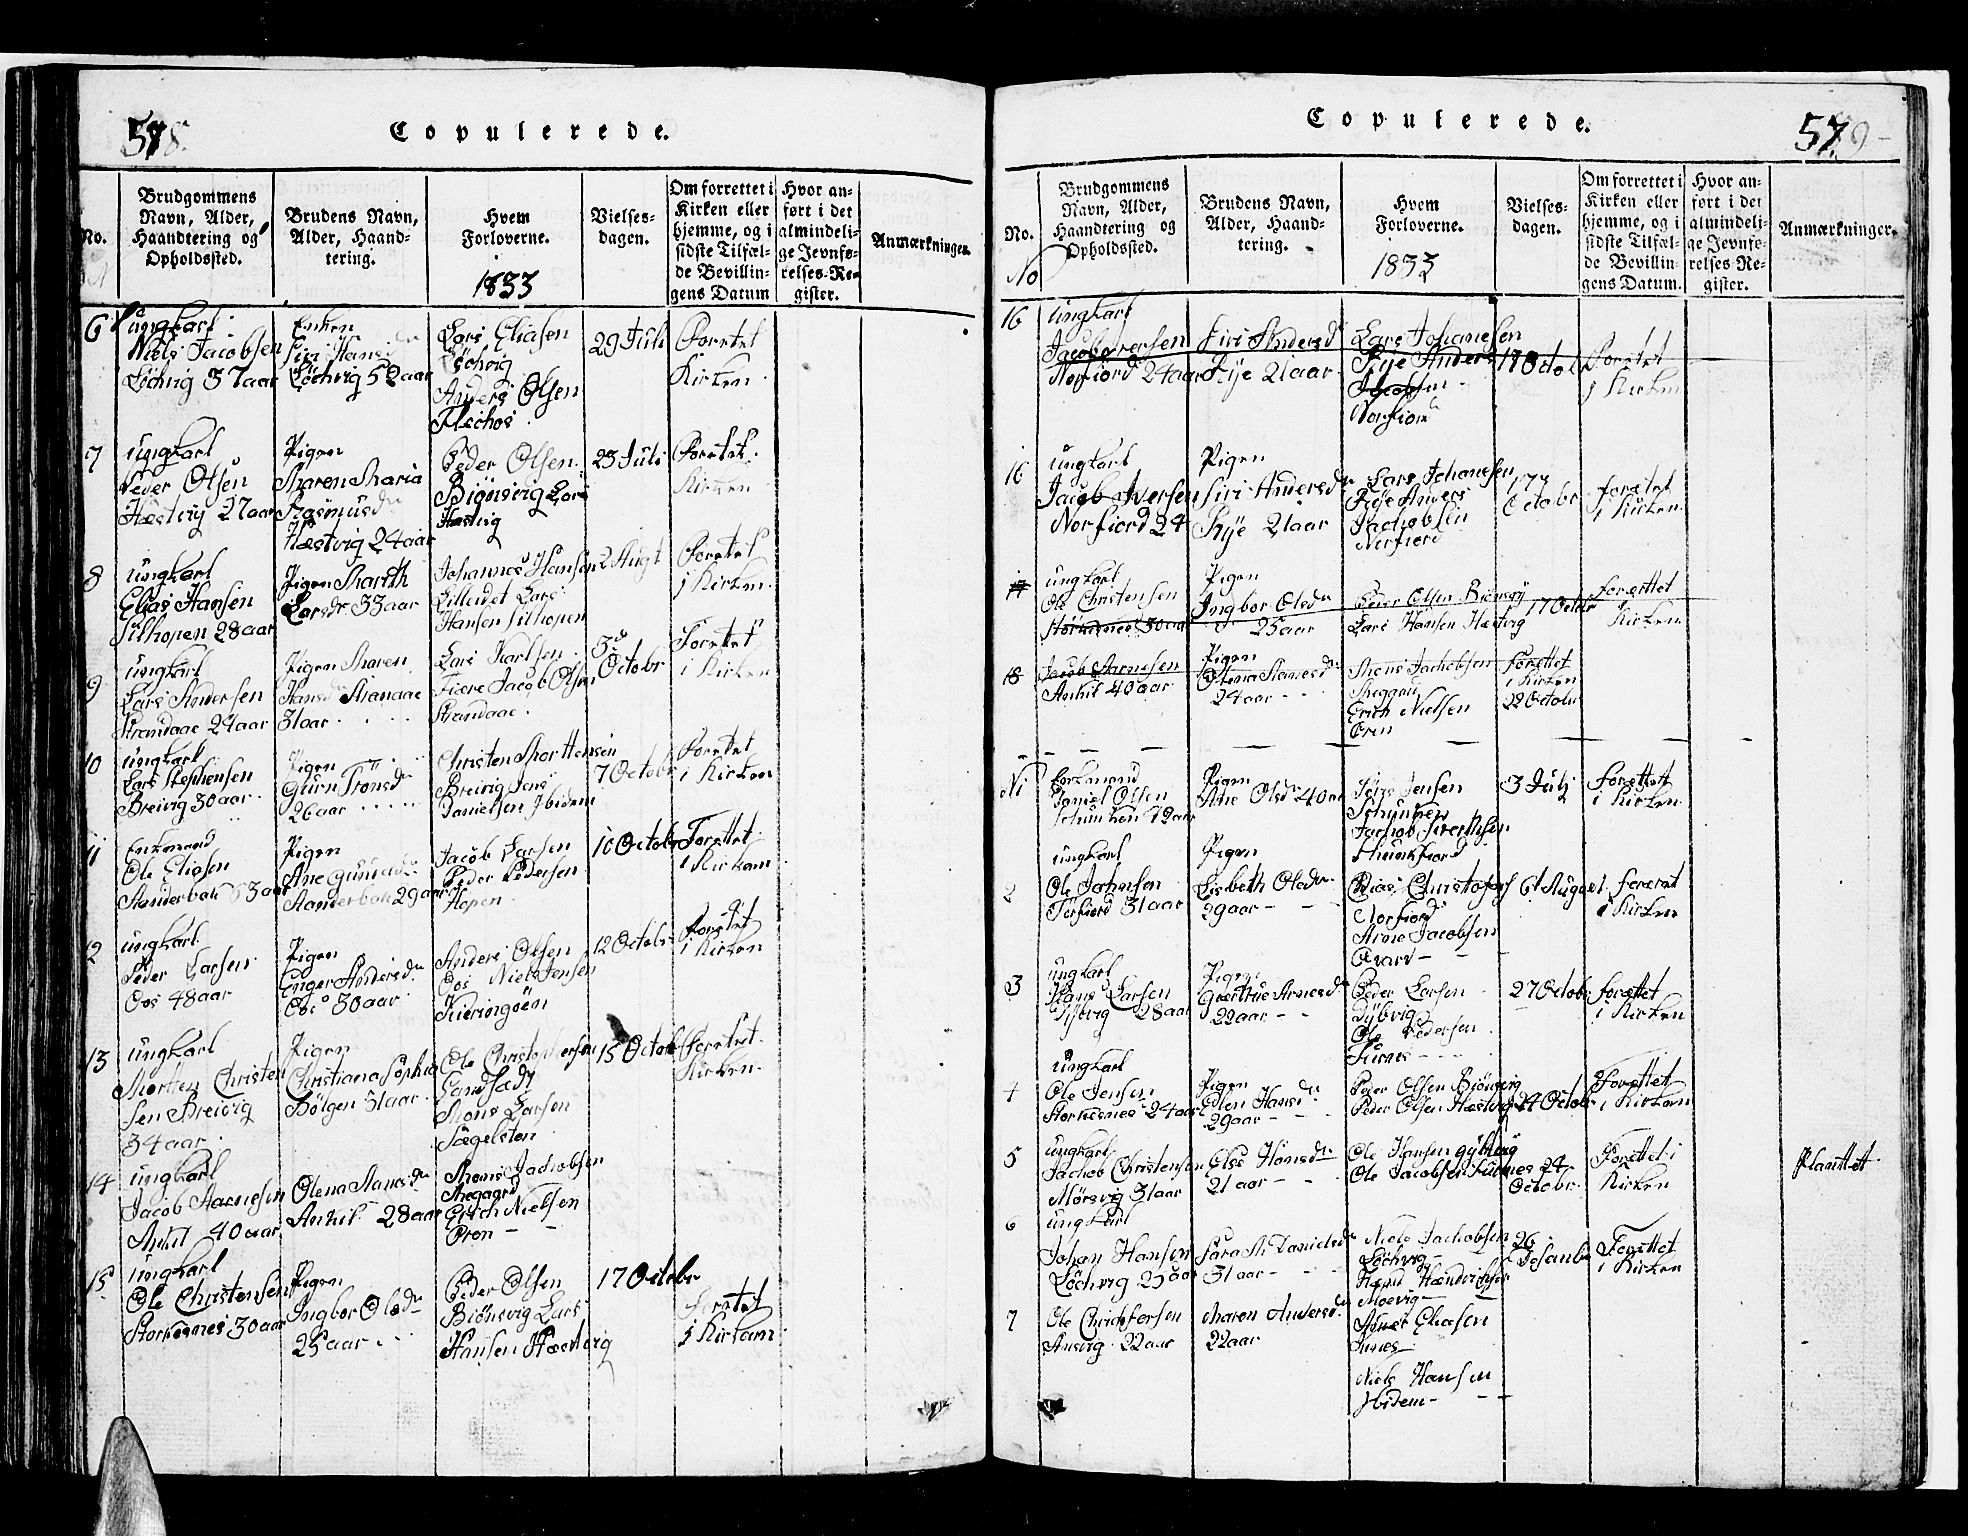 578.
Copulerede.
No.
Brudgommens Navn, Alder, Haandtering og Opholdssted.
Brudens Navn, Alder, Haandtering.
Hvem Forloverne.
1833
Vielsesdagen.
Om forrettet i Kirken eller hjemme, og i sidste Tilfælde Bevillingens Datum
Hvor anført i det almindelige Jevnførelses-Register.
Anmærkninger.
6
ungkarl
Niels Jacobsen
Löchvig 37 aar
Enken
Siri Hansdr
Löchvig 52 aar
Lars Eliasen
Löchvig
Anders Olsen
29 Juli
Forettet
Kirken.
7
ungkarl
Peder Olsen
Hæstvig 27 aar
Pigen
Maren Maria
Rasmusdr
Hæstvig 24 aar
Peder Olsen
Biönsvig Lars
Hæstvig
23 Juli
Forettet.
Kirken
8
ungkarl
Elias Hansen
Silhopen 28 aar
Pigen Marith
Larsdr 33 aar
Johannes Hansen
Lilleidet Lars
Hansen Silhopen
2 Augt
Forettet
i Kirken.
9
ungkarl
Lars Andersen
Strandaae 24 aar
Pigen Maren
Hansdr Strandaae
31 aar
Lars Karlsen
Fiere Jacob Olsen
Strandaae.
3d
Octobr
Forettet
i Kirken
10
ungkarl
Lars Stephensen
Breivig 30 aar
Pigen
Gurn Tronsdr
26 aar
Christen Mortensen
Breivig Jens
Danielsen Ibidem
7 Octobr
Forettet
i Kirken
11
Enkemand
Ole Eliasen
53 aar
Pigen
Ane
29 aar
Jacob Larsen
Peder Pedersen
Hopen
10 Octobr
Forettet
i Kirken
12
ungkarl.
Peder Larsen
Oos 48 aar
Pigen
Enger Andersdr
Oos 30 aar
Anders Olsen
Oos Niels Jensen
Kieringöen
12 Octobr
Forettet
i Kirken
13
ungkarl
Morten Christen
sen Breivig
34 aar
Pigen
Christiana Sophia
Bölgen 31 aar
Ole Christophersen
Mons Larsen
Sægelsten
15 Octob
Forettet.
Kirken.
14
ungkarl
Jacob Aarnesen
Ankil 40 aar
Olena Monsdr
Ankil 28 aar
Mons Jachobsen
Erich Nielsen
15
ungkarl
Ole Christensen
Storkesnes 30 aar
Pigen
Ingbor Olsdr
25 aar
Peder Olsen
Biönsvig Lars
Hansen Hæstvig
17 October
Forettet
i Kirken
Copulerede.
579
No.
No
Brudgommens Navn, Alder, Haandtering og Opholdssted.
Brudens Navn, Alder, Haandtering.
Hvem Forloverne.
1833
Vielsesdagen.
Om forrettet i Kirken eller hjemme, og i sidste Tilfælde Bevillingens Datum.
Hvor anført i det almindelige Jevnførelses-Register.
Anmærkninger.
16
ungkarl
Jacob Iversen
Norfiord 24 aar
Siri Andersdr
Rye 21 aar
Lars Johanesen
Rye Anders
Jacobsen
Norfiord
17 Octob
Forettet
i Kirken
16
ungkarl
Jacob Iversen
Norfiord 24
Pigen
Siri Andersdr
Rye 21 aar
Lars Johanesen
Röye Anders
Jachobsen
Norfiord
17
Octobr
forettet
i Kirken
17
ungkarl
Ole Christensen
Storkesnes 30 aar
Pigen
Ingbor Olsdr
25 aar
Peder Olsen Biönsvig
Lars Hansen Hæstvig
17 Octobr
forettet
Kirken
18
Jacob Aarnesen
Ankil 40 aar
Pigen
Olena Monsdr
24 aar
Mons Jachobsen
Erich Nielsen
Forettet
i Kirken
22 Octobr
1
Enkemand
Daniel Olsen
Pigen
Ane Olsdr 40 aar
Jensen
3 Julj
forettet
i Kirken
2
ungkarl
Ole Johnsen
Törfiord 31 aar
Pigen
Lisbeth Olsdr
29 aar
Christofors
Norfiord
Arne Jacobsen
6t August
forettet
i Kirken
3
ungkarl
Hans Larsen
Dybvig 28 aar
Pigen
Giertrue Arnesdr
22 aar
Peder Larsen
Dybvig
Ole Pedersen
27 Octobr
forettet
i Kirken
4
ungkarl
Ole Jensen
Storkesnes 24 aar
Pigen
Elen Hansdr
29 aar
Peder Olsen Biönsvig
Peder Olsen Hæstvig
24 Octobr
Forettet
i Kirken
5
ungkarl
Jachob Christensen
Mörsvig 31 aar
Else Hansdr
21 aar
Ole Hansen
Ole Jacobsen
24
Octobr.
Forettet i
Kirken
6
ungkarl
Johan Hansen
Löchvig 25 aar
Sara M Danielsdr
31 aar
Niels Jachobsen
Löchvig
26
Forettet
i Kirken
7
Ole Christofersen
22 aar
Maren Andersdr
22 aar
Eliasen
Niels Hansen
Ibidem